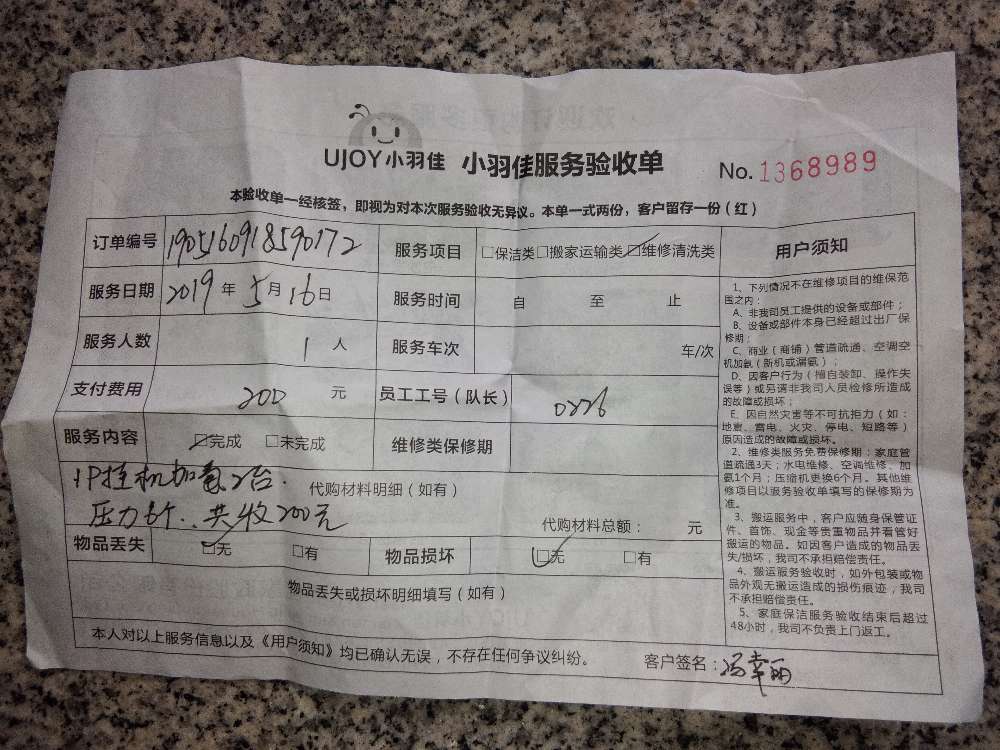 UJOY小羽佳 小羽佳服务验收单 No.1368989
本验收单一经核签，即视为对本次服务验收无异议。本单一式两份，客户留存一份（红）
订单编号 1905160918590172 服务项目 □保洁类□搬家运输类☑维修清洗类
服务日期 2019年5月16日 服务时间 自 至 止
服务人数 1人 服务车次 车/次
支付费用 200 元 员工工号（队长） 0226
服务内容 ☑完成 □未完成 维修类保修期
1P挂机加氟2台.
代购材料明细（如有）
压力6个..共收200元
代购材料总额： 元
物品丢失 ☑无 □有 物品损坏 ☑无 □有
物品丢失或损坏明细填写（如有）
本人对以上服务信息以及《用户须知》均已确认无误，不存在任何争议纠纷。 客户签名：冯幸丽
用户须知
1、下列情况不在维修项目的维保范
围之内：
A、非我司员工提供的设备或部件；
B、设备或部件本身已经超过出厂保
修期；
C、商业（商铺）管道疏通、空调空
机加氨（新机或漏氨）；
D、因客户行为（擅自装卸、操作失
误等）或另请非我司人员检修所造成
的故障或损坏；
E、因自然灾害等不可抗拒力（如：
地震、雷电、火灾、停电、短路等）
原因造成的故障或损坏。
2、维修类服务免费保修期：家庭管
道疏通3天；水电维修、空调维修、加
氨1个月；压缩机更换6个月。其他维
修项目以服务验收单填写的保修期为
准。
3、搬运服务中，客户应随身保管证
件、首饰、现金等贵重物品并看管好
搬运的物品。如因客户造成的物品丢
失/损坏，我司不承担赔偿责任。
4、搬运服务验收时，如外包装或物
品外观无搬运造成的损伤痕迹，我司
不承担赔偿责任。
5、家庭保洁服务验收结束后超过
48小时，我司不负责上门返工。